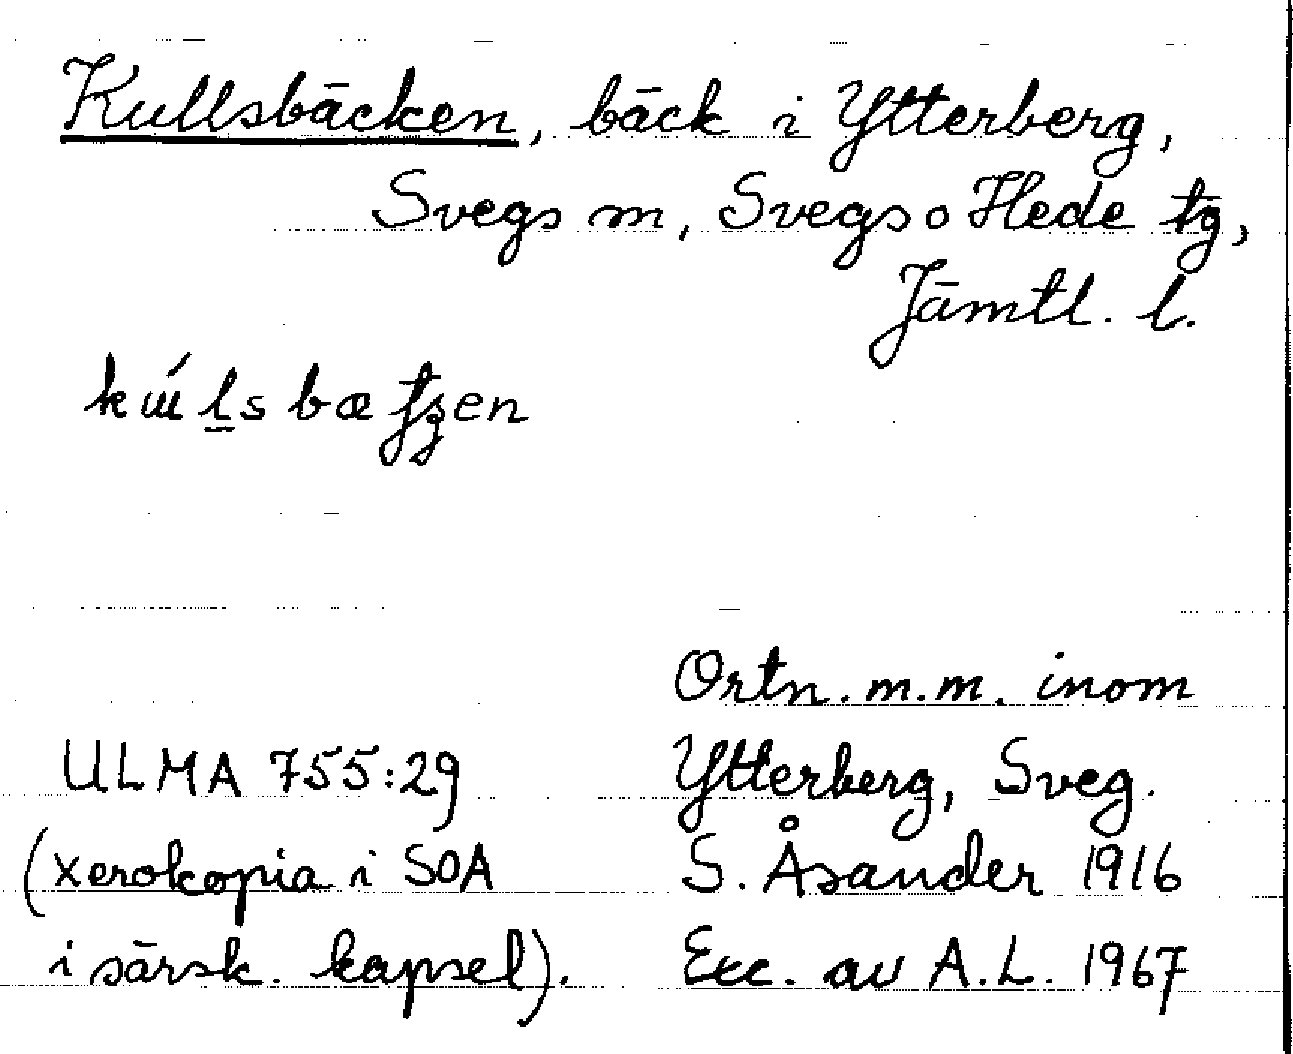 Kullsbäcken, bäck i Ytterberg,
Svegs m, Svegs o Hede tg,
Jämtl. l.
Ortn. m.m. inom
ULMA 755:29 Ytterberg, Sveg.
(xerokopia i SOA S. Åsander 1916
i särsk. kapsel). Exc. av A.L. 1967